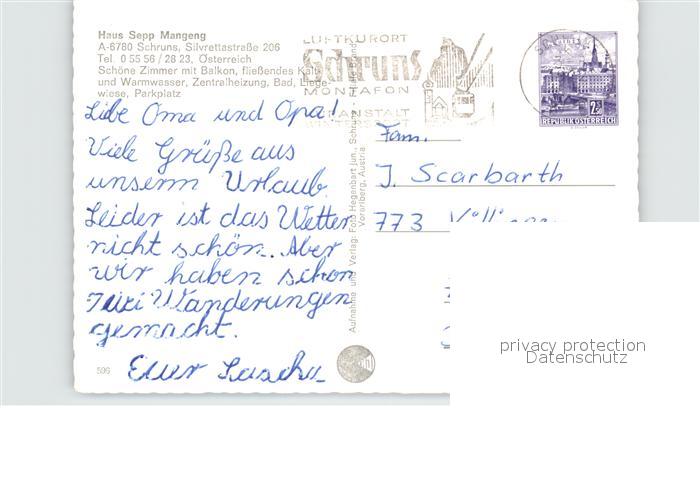 Haus Sepp Mangeng
A-6780 Schruns, Silvrettastraße 206
Tel. 0 55 56 / 28 23, Österreich
Schöne Zimmer mit Balkon, fließendes Kalt-
und Warmwasser, Zentralheizung, Bad, Liege-
wiese, Parkplatz
Liebe Oma und Opa!
Viele Grüße aus
unserm Urlaub.
Leider ist das Wetter
nicht schön. Aber
wir haben schon
zwei Wanderungen
gemacht.
Euer Sascha
596
Aufnahme und Verlag: Foto Hegenbart jun., Schruns
Vorarlberg, Austria
LUFTKURORT
Schruns
MONTAFON
2.50
REPUBLIK ÖSTERREICH
Fam.
J. Scarbarth
773
privacy protection
Datenschutz